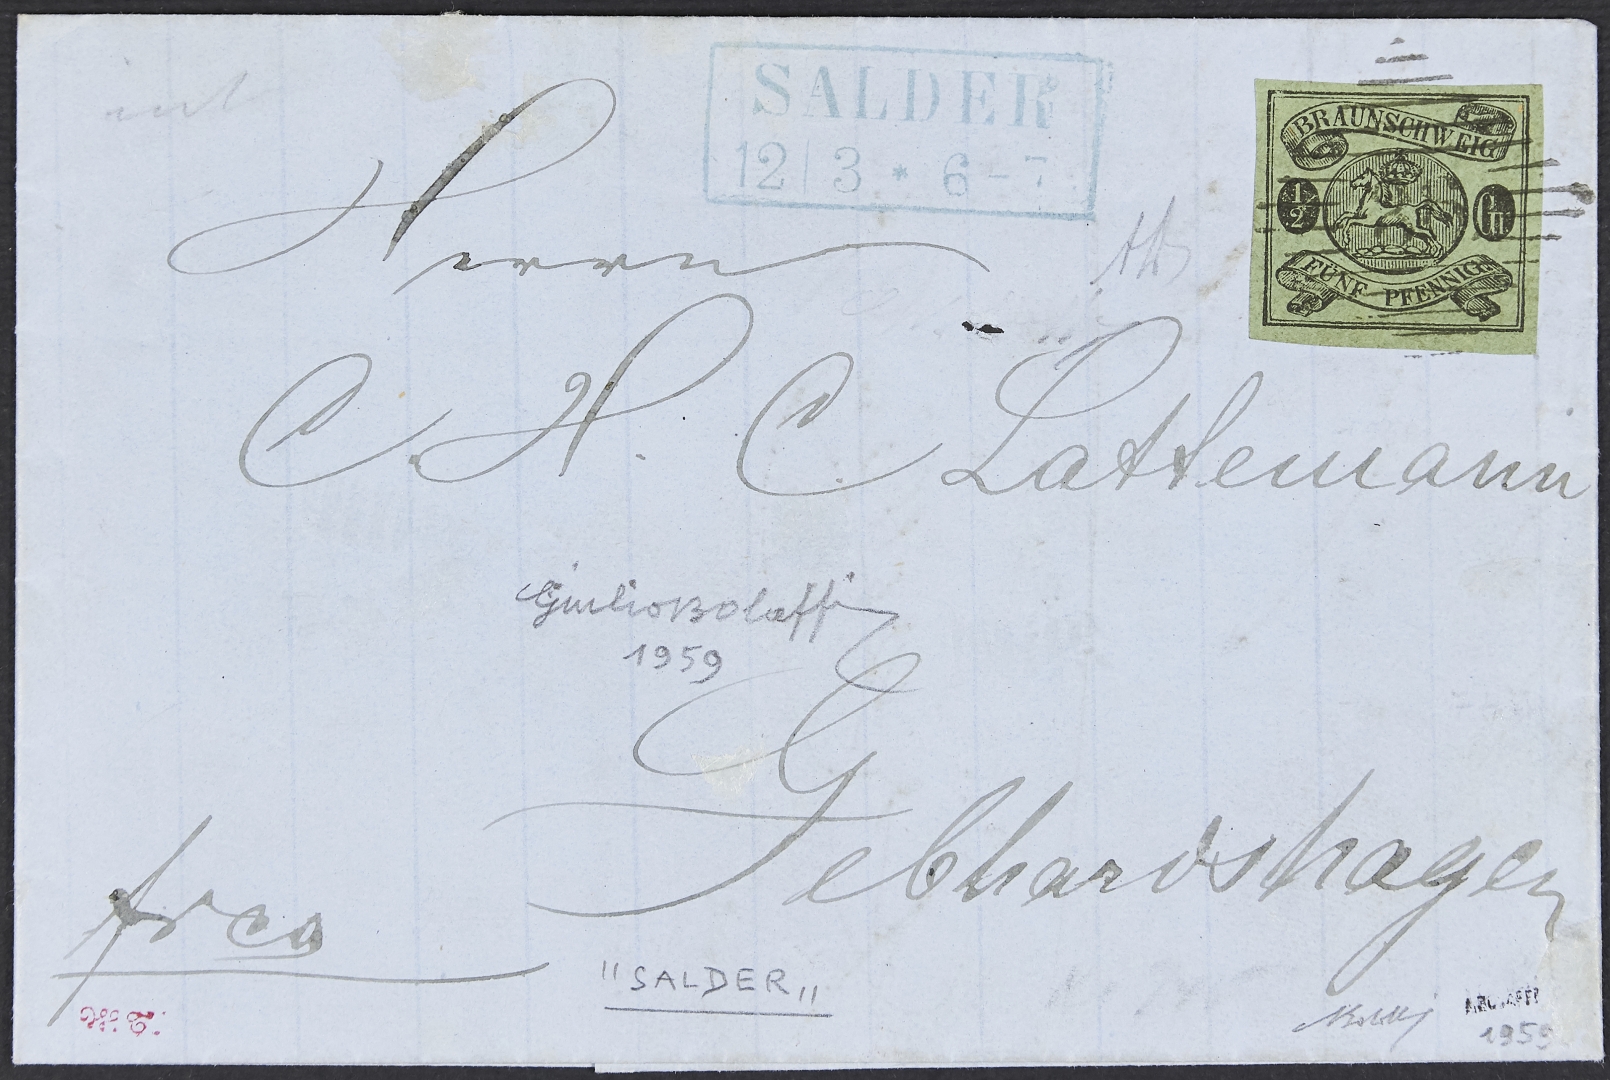 SALDER
12 | 3 * 6 - 7
BRAUNSCHWEIG
1/2 Gr
FÜNF PFENNIGE
Herrn
C. H. C. Lättemann
Giulio Bolaffi
1959
Gebhardshagen
frco
"SALDER„
1959